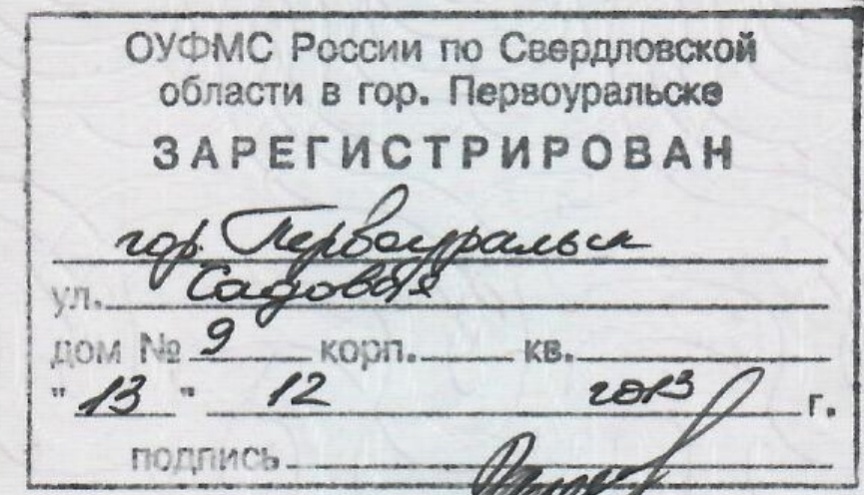 ОУФМС России по Свердловской
области в гор. Первоуральске
ЗАРЕГИСТРИРОВАН
гор. Первоуральск
ул. Садовая
дом № 9 корп. кв.
"13" 12 2013 г.
подпись